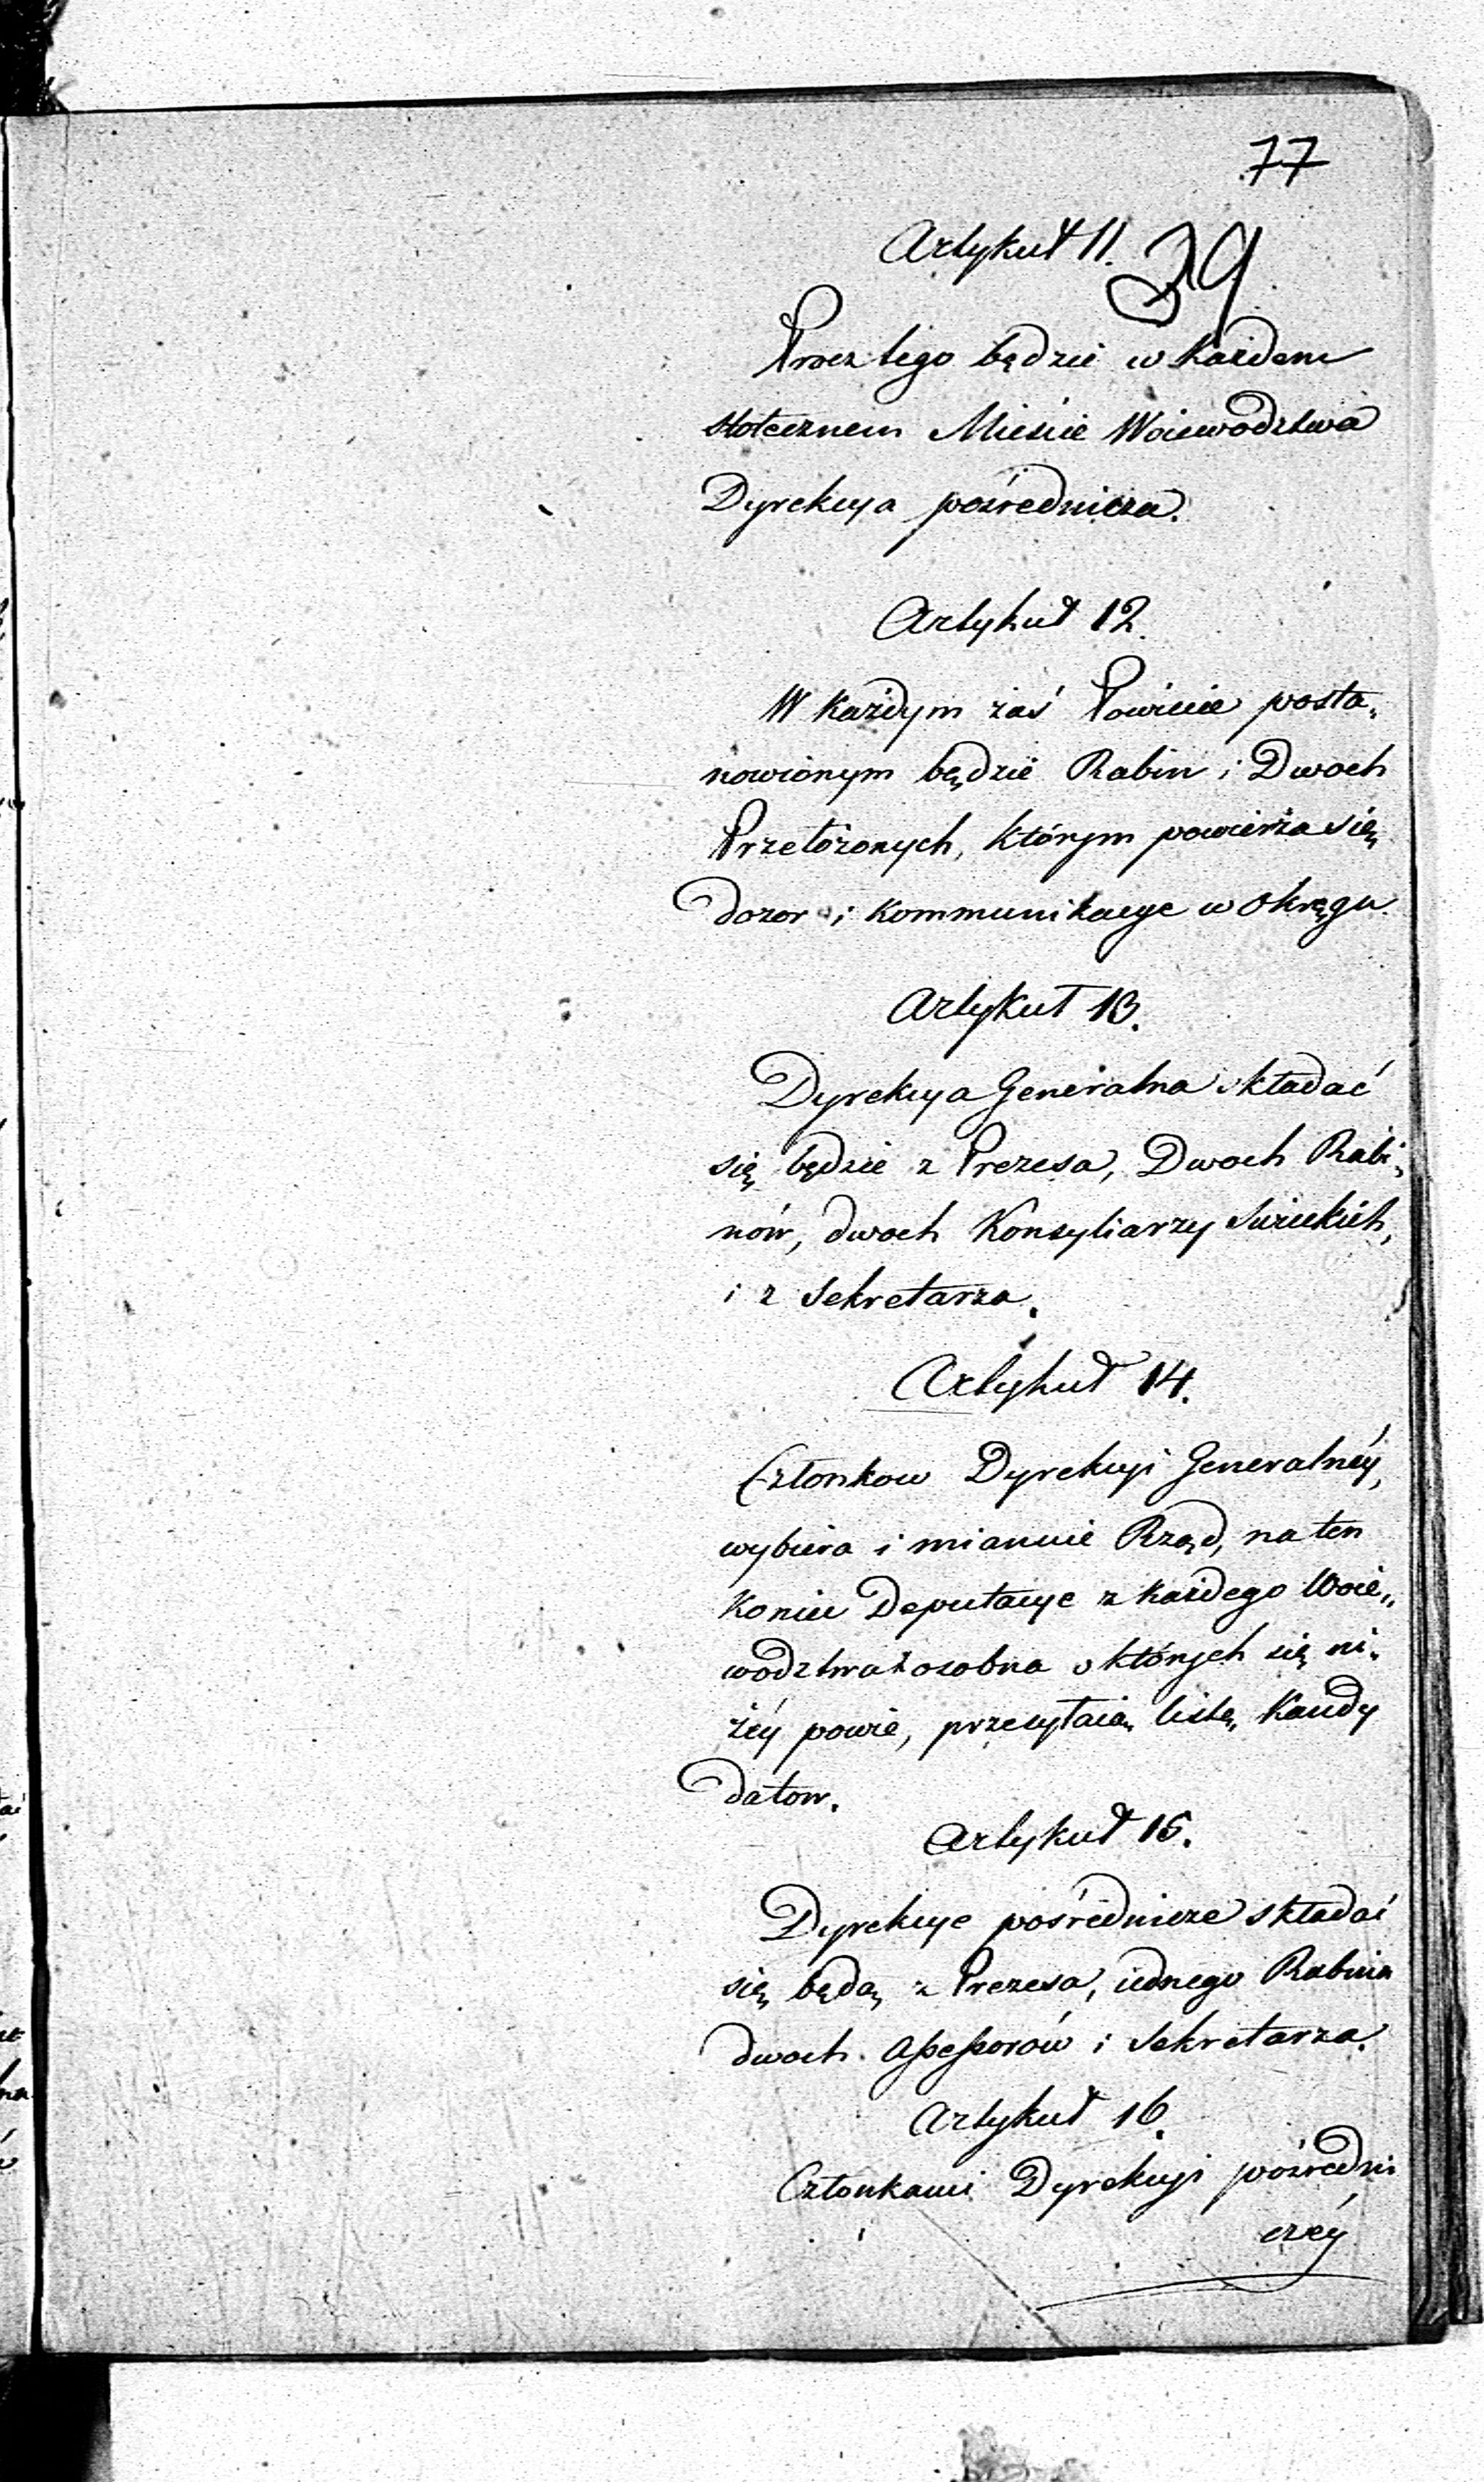 77
Artykuł 11.
39
Procz tego będzie w każdem
stołecznem Mieście Woiewodztwa
Dyrekcya pośrednicza.
Artykuł 12.
W każdym zaś Powiecie posta„
nowionym będzie Rabin i Dwoch
Przełożonych, którym powierza się
dozor i kommunikacye w okręgu.
Artykuł 13.
Dyrekcya Generalna składać
się będzie z Prezesa, Dwoch Rabi„
nów, dwoch Konsyliarzy Swieckich,
i z Sekretarza.
Artykuł 14.
Członkow Dyrekcyi Generalnéy,
wybiera i mianuie Rząd, na ten
koniec Deputacye z każdego Woie„
wodztwa osobna o których się ni„
żéy powie, przesyłaią listę Kandy
datow.
Artykuł 15.
Dyrekcye pośrednicze składać
się będą z Prezesa, iednego Rabina
dwoch Assessorów i Sekretarza.
Artykuł 16.
Członkami Dyrekcyi pośredni
czéy